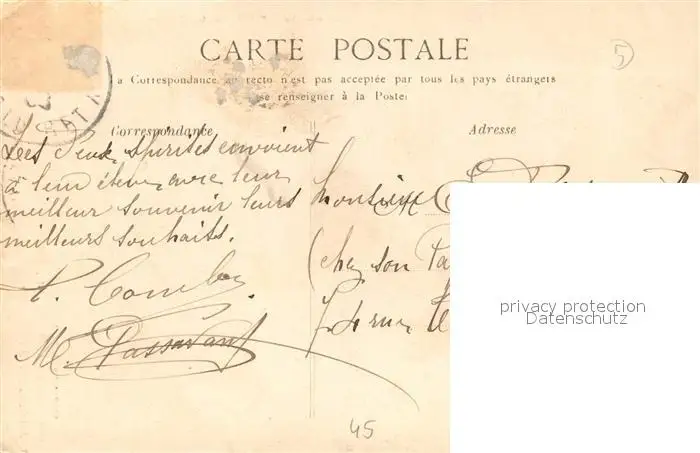 CARTE POSTALE
5
La Correspondance au recto n'est pas acceptée par tous les pays étrangers
se renseigner à la Poste
Correspondance
Adresse
Les deux spirites envoient
à leur élève avec leur
meilleur souvenir leurs
meilleurs souhaits.
P. Combes.
M. Passavant
Monsieur
(chez son
rue
privacy protection
Datenschutz
45